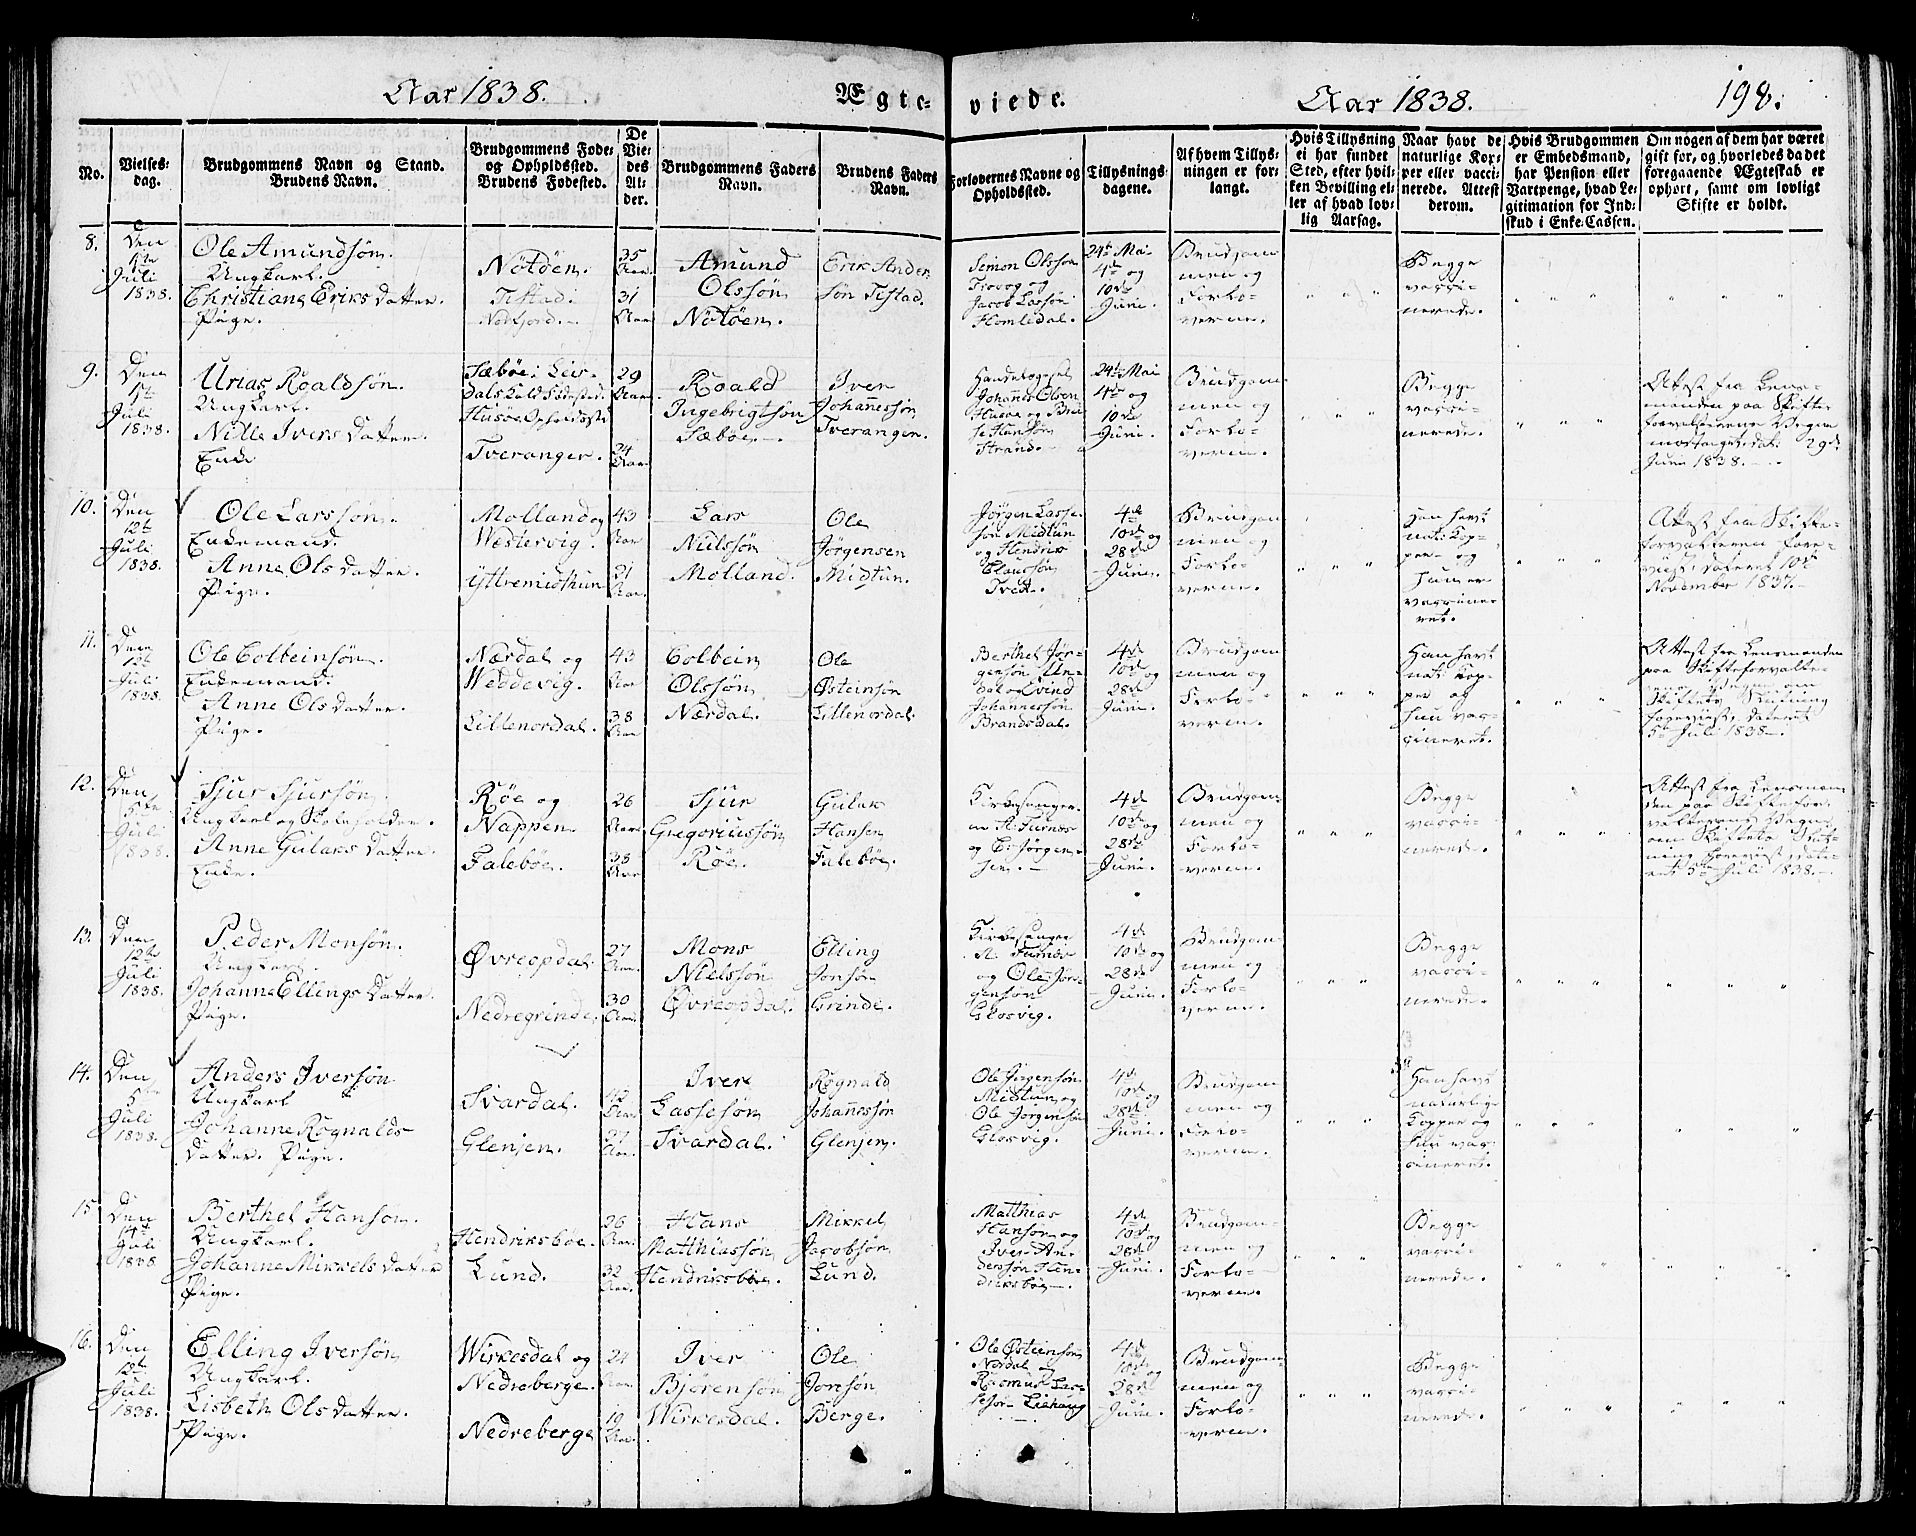 Aar 1838. Ægte- viede. Aar 1838. 198.
No.
Vielses-
dag.
Brudgommens Navn og Stand.
Brudens Navn.
Brudgommens Føde-
og Opholdssted.
Brudens Fødested.
De
Vie-
des
Al-
der.
Brudgommens Faders
Navn.
Brudens Faders
Navn.
Forlovernes Navne og
Opholdssted.
Tillysnings-
dagene.
Af hvem Tillys-
ningen er for-
langt.
Hvis Tillysning
ei har fundet
Sted, efter hvil-
ken Bevilling el-
ler af hvad lov-
lig Aarsag.
Naar havt de
naturlige Kop-
per eller vacci-
nerede. Attest
derom.
Hvis Brudgommen
er Embedsmand,
har Pension eller
Vartpenge, hvad Le-
gitimation for Ind-
skud i Enke-Cassen.
Om nogen af dem har været
gift før, og hvorledes da det
foregaaende Ægteskab er
ophørt, samt om lovligt
Skifte er holdt.
8.
Den
Juli
1838.
Ole Amundsøn.
Ungkarl.
Christiane Eriks Datter.
Pige.
Nøtøen.
Tistad i
Nordfjord.
35
Aar.
31
Aar.
Amund
Olssøn
Nøtøen.
Erik Ander
søn Tistad.
Simon Olssøn
Trovog og
Jacob Lassøn
Homledal.
24de Mai
4de og
10de
Juni.
Brudgom
men og
Forlo-
verne.
Begge
vacci-
nerede.
9.
Den
Juli
1838.
Urias Roaldsøn.
Ungkarl.
Nille Ivers Datter.
Enke
Sæbøe i Leir-
dals Kald Fødested.
Husøe Opholdssted
Tveranger.
29
Aar.
34
Aar.
Roald
Ingebrigtsøn
Sæbøe.
Iver
Johannessøn
Tverangen.
Johannes Olsen
Husøe og
Hansøn
Strand.
24de Mai
4de og
10de
Juni.
Brudgom
men og
Forlo-
verne.
Begge
vacci-
nerede.
Attest fra Lens-
manden paa Skifte
forvalterens Vegne
modtaget, dat. 29de
Juni 1838.
10.
Den
12te
Juli
1838.
Ole Larssøn.
Enkemand.
Anne Ols Datter.
Pige.
Molland og
Westervig.
Yttremidthun
43
Aar
21
Aar.
Lars
Nielssøn
Molland.
Ole
Jørgensen
Midtun.
Jørgen Lasse-
søn Midtun
og Hendrik
Claussøn
Tveit.
4de
10de og
28de
Juni.
Brudgom
men og
Forlo-
verne.
Han havt
nat. Kop-
per og
hun er
vaccine-
ret.
Attest fra Skifte-
forvalteren fore-
viist, dateret 10de
November 1837.
11.
Den
12te
Juli
1838.
Ole Colbeinsøn.
Enkemand.
Anne Ols Datter.
Pige.
Nærdal og
Weddevig.
Lillenordal.
43
Aar
38
Aar
Colbein
Olssøn
Nærdal.
Ole
Østeinsøn
Lillenordal.
Berthel Jør-
gensøn Un-
dal og Eivind
Johannessøn
Brandsdal.
4de
10de og
28de
Juni.
Brudgom
men og
Forlo-
verne.
Han havt
nat. Kop-
per og
hun vac-
cineret.
Attest fra Lensmanden
paa Skifteforvalte-
rens Vegne om
Skiftets Slutning
foreviist, dateret
5te Juli 1838.
12.
Den
5te
Juli
1838.
Sjur Sjursøn.
Ungkarl og Skoleholder.
Anne Gulaks Datter.
Enke.
Røe og
Nappen.
Falebøe.
26
Aar.
38
Aar
Sjur
Gregoriussøn
Røe.
Gulak
Hansen
Falebøe.
Kirkesanger-
ne A. Furnæs
og E. Jørgen-
sen.
4de
10de og
28de
Juni.
Brudgom
men og
Forlo-
verne.
Begge
vacci-
nerede.
Attest fra Lensman-
den paa Skiftefor-
valterens Vegne
om Skiftets Slut-
ning foreviist, date-
ret 5te Juli 1838.
13.
Den
12te
Juli
1838.
Peder Monsøn.
Ungkarl.
Johanne Ellings Datter.
Pige.
Øvreopdal.
Nedregrinde.
27
Aar.
30
Aar.
Mons
Nielssøn
Øvreopdal.
Elling
Jonsøn
Grinde.
Kirkesanger
A. Furnæs
og Ole Jør-
gensøn
Glosvig.
4de
10de og
28de
Juni.
Brudgom-
men og
Forlo-
verne.
Begge
vacci-
nerede.
14.
Den
5te
Juli
1838.
Anders Iversøn
Ungkarl
Johanne Rognalds
Datter. Pige.
Svardal.
Glenjen.
Aar.
27
Aar.
Iver
Lassesøn
Svardal.
Rognald
Johannessøn
Glenjen.
Ole Jørgensøn
Midtun og
Ole Jørgensøn
Glosvig.
4de
10de og
28de
Juni.
Brudgom
men og
Forlo-
verne.
Han havt
naturlige
Kopper og
hun vac-
cineret.
15
Den
14de
Juli
1838
Berthel Hansøn.
Ungkarl.
Johanne Mikkels Datter
Pige.
Hendriksbøe.
Lund.
26
Aar.
32
Aar.
Hans
Matthiassøn
Hendriksbøe.
Mikkel
Jacobsøn
Lund.
Matthias
Hansøn og
Iver An-
derssøn Hen-
driksbøe.
4de
10de og
28de
Juni.
Brudgom-
men og
Forlo-
verne.
Begge
vacci-
nerede.
16.
Den
12te
Juli
1838.
Elling Iversøn
Ungkarl.
Lisbeth Ols Datter.
Pige.
Wirkesdal og
Nedreberge.
Nedreberge
24
Aar.
19
Aar.
Iver
Bjørensøn
Wirkesdal.
Ole
Jonsøn
Berge.
Ole Østeinsøn
Nordal og
Rasmus Las-
sesøn Liehaug
4de
10de
28de
Juni.
Brudgom-
men og
Forlo-
verne.
Begge
vacci-
nerede.